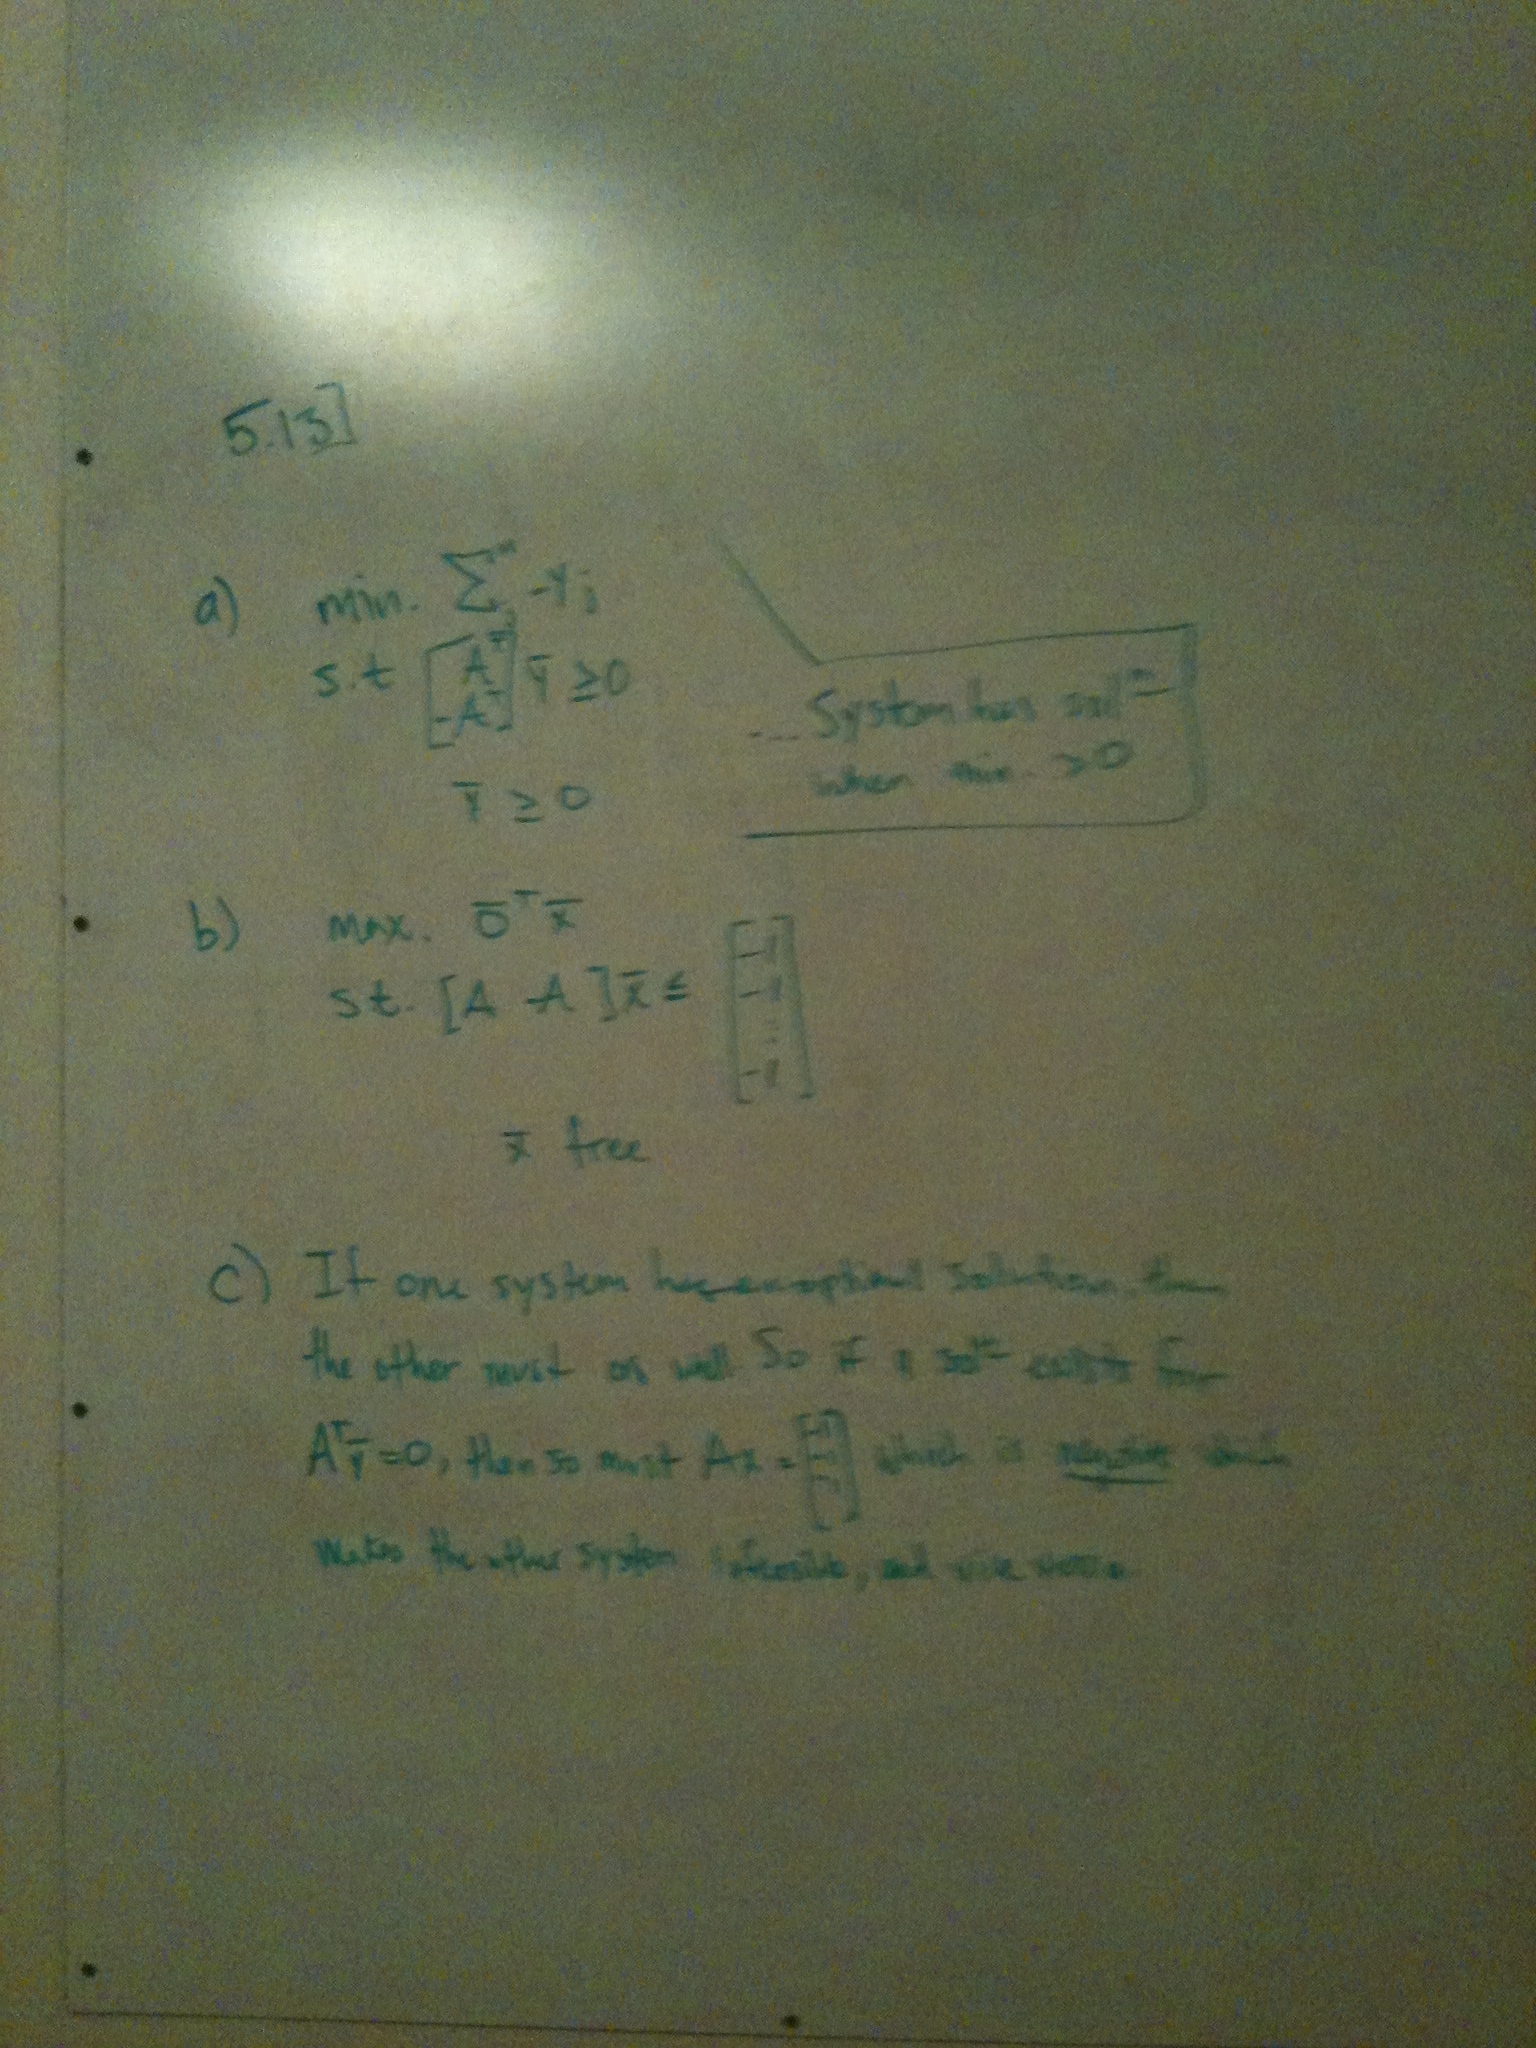 5.13]
a) min. Σ^m_j -Y_j
s.t [A^T
-A^T] Y̅ ≥ 0
Y̅ ≥ 0
... System has sol^n
when min. > 0
b) max. 0̅^T x̅
s.t. [A -A] x̅ ≤ [-1
-1
:
-1]
x̅ free
c) If one system has an optimal solution, then
the other must as well. So if a sol^n exists for
A^T Y̅ = 0, then so must Ax = [-1
-1
-1] which is negative which
makes the other system infeasible, and vice versa.